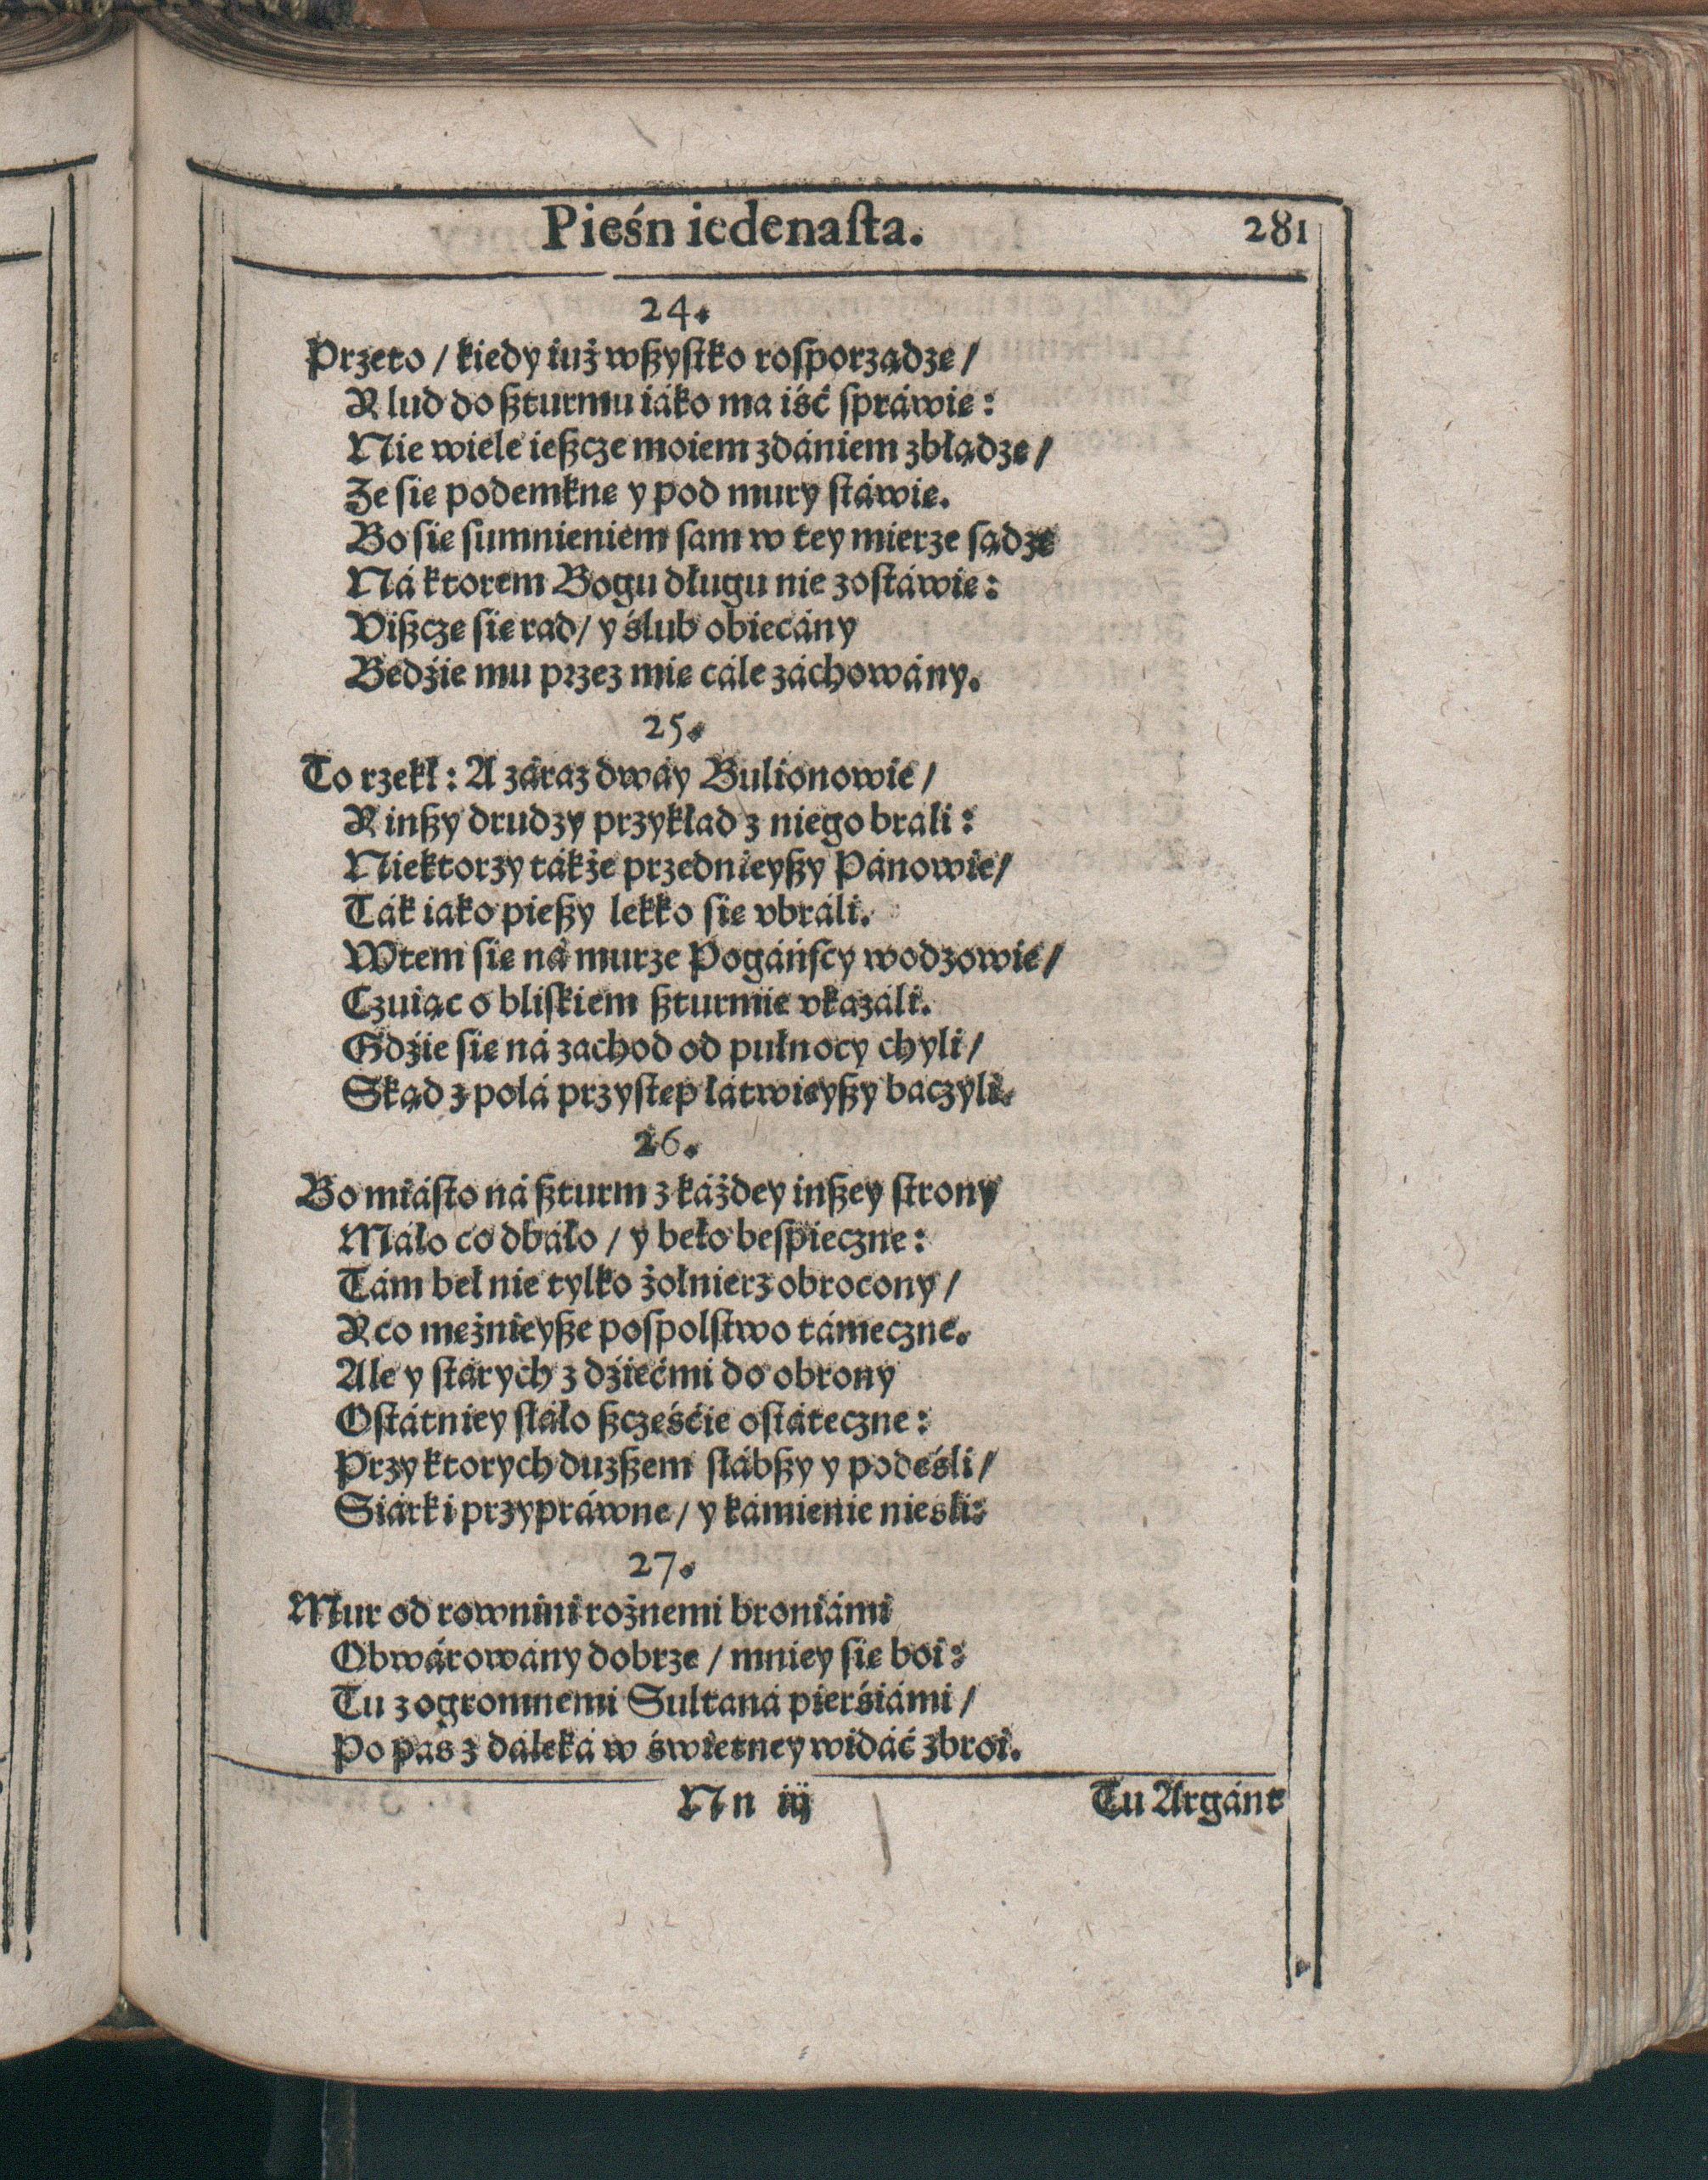 Pieśń iedenaſta.
281
24.
Przeto / kiedy iuż wßyſtko roſporządzę /
R lud do ßturmu iáko ma iść ſpráwię:
Nie wiele ießcze moiem zdániem zbłądzę /
Ze ſię podemknę y pod mury ſtáwię.
Bo ſię ſumnieniem ſam w tey mierze ſądzę
Ná ktorem Bogu długu nie zoſtáwię:
Vißczę ſię rad / y ślub obiecány
Będźie mu przez mię cále záchowány.
25.
To rzekł: A záraz dwáy Bulionowie /
R inßy drudzy przykład z niego brali:
Niektorzy tákże przednieyßy Pánowie /
Ták iáko pießy lekko ſię vbráli.
Wtem ſię ná murze Pogáńſcy wodzowie /
Czuiąc o bliſkiem ßturmie vkazáli.
Gdźie ſię ná zachod od pułnocy chyli /
Skąd z polá przyſtęp łátwieyßy baczyli.
26.
Bo miáſto ná ßturm z káżdey inßey ſtrony
Máło co dbáło / y beło beſpieczne:
Tám beł nie tylko żołnierz obrocony /
R co mężnieyße poſpolſtwo támeczne.
Ale y ſtárych z dźiećmi do obrony
Oſtátniey ſłáło ßczęśćie oſtáteczne:
Przy ktorych dużßem ſłábßy y podeśli /
Siárki przypráwne / y kámienie nieśli:
27.
Mur od rownini rożnemi broniámi
Obwárowány dobrze / mniey ſię boi:
Tu z ogromnemi Sultaná pierśiámi /
Po pás z dáleká w świetney widáć zbroi.
Nn iij
Tu Argánt